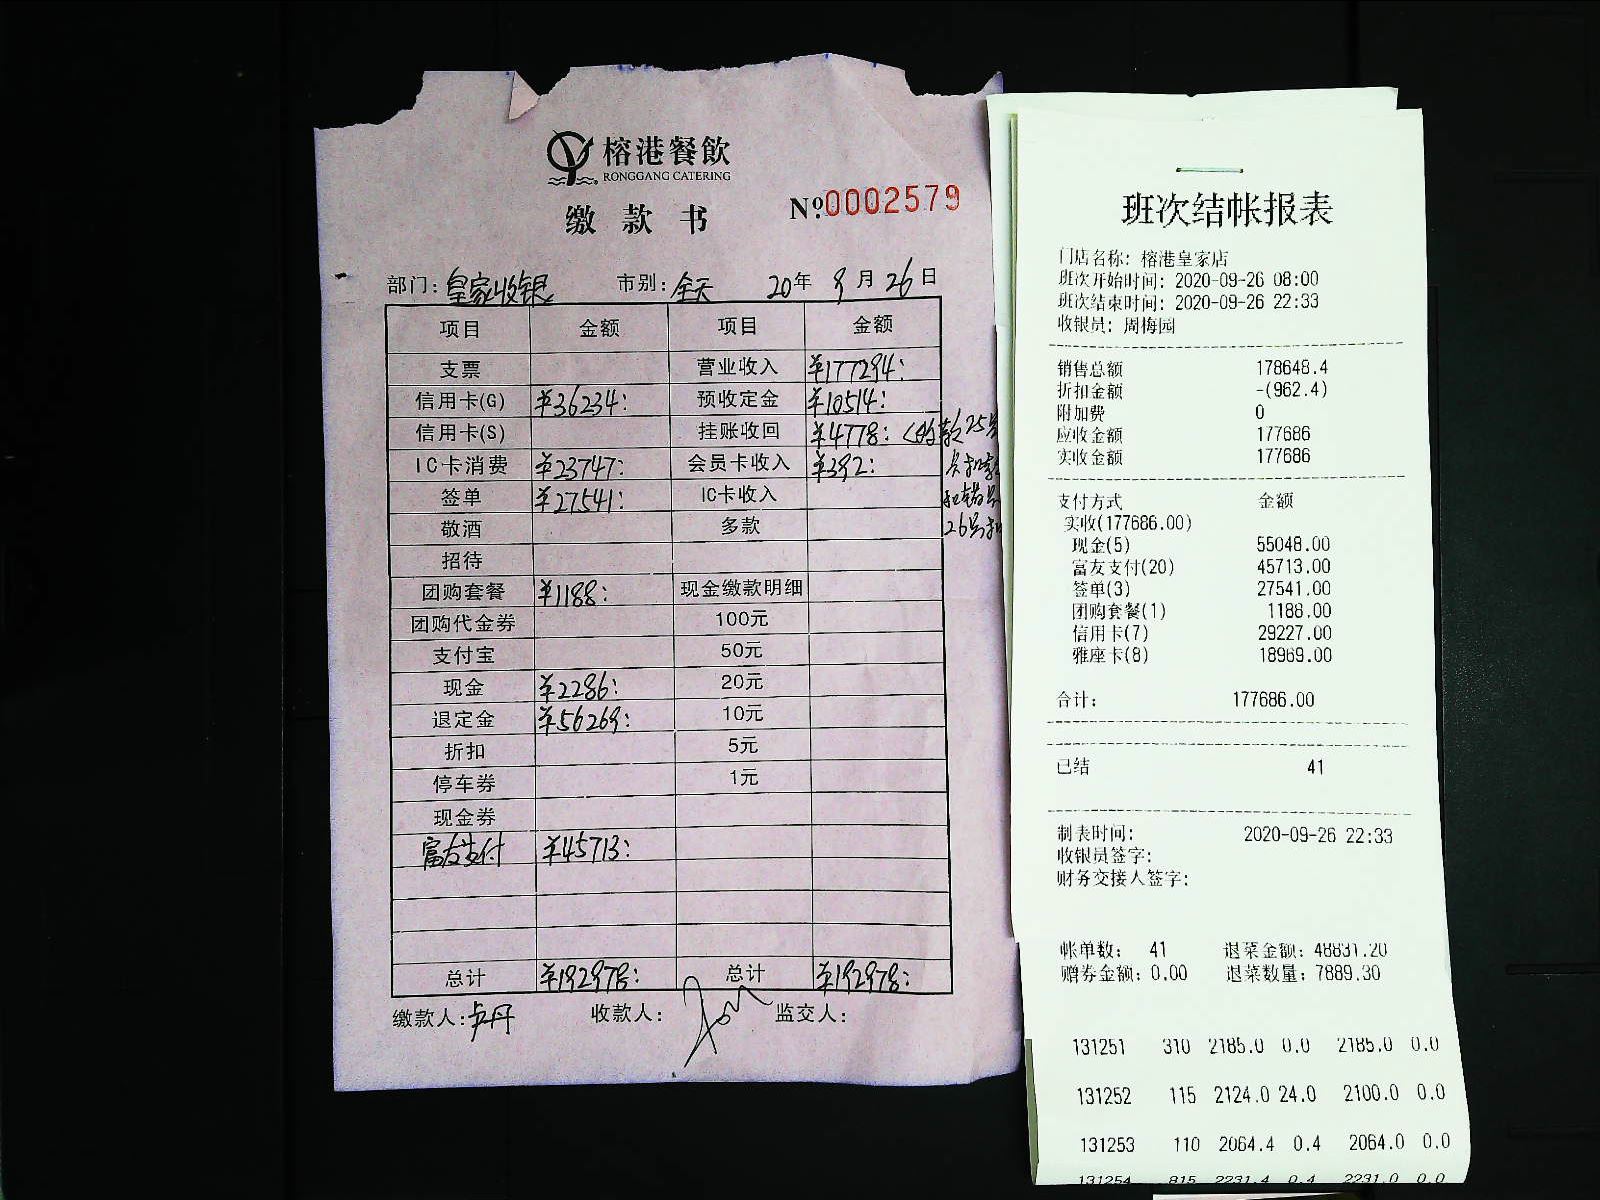 榕港餐飲
RONGGANG CATERING
缴款书
№0002579
部门：皇家收银 市别：全天 20年 9月 26日
项目 金额 项目 金额
支票 营业收入 ¥177294：
信用卡(G) ¥36234： 预收定金 ¥10514：
信用卡(S) 挂账收回 ¥4778：<收款25号
IC卡消费 ¥23747： 会员卡收入 ¥392：
签单 ¥27541： IC卡收入
敬酒 多款 26号
招待
团购套餐 ¥1188： 现金缴款明细
团购代金券 100元
支付宝 50元
现金 ¥2286： 20元
退定金 ¥56269： 10元
折扣 5元
停车券 1元
现金券
富友支付 ¥45713：
总计 ¥192978： 总计 ¥192978：
缴款人：卢丹 收款人： 监交人：
班次结帐报表
门店名称：榕港皇家店
班次开始时间：2020-09-26 08:00
班次结束时间：2020-09-26 22:33
收银员：周梅园
销售总额 178648.4
折扣金额 -(962.4)
附加费 0
应收金额 177686
实收金额 177686
支付方式 金额
实收(177686.00)
现金(5) 55048.00
富友支付(20) 45713.00
签单(3) 27541.00
团购套餐(1) 1188.00
信用卡(7) 29227.00
雅座卡(8) 18969.00
合计： 177686.00
已结 41
制表时间： 2020-09-26 22:33
收银员签字：
财务交接人签字：
帐单数： 41 退菜金额：48831.20
赠券金额：0.00 退菜数量：7889.30
131251 310 2185.0 0.0 2185.0 0.0
131252 115 2124.0 24.0 2100.0 0.0
131253 110 2064.4 0.4 2064.0 0.0
131254 815 2231.4 0.4 2231.0 0.0